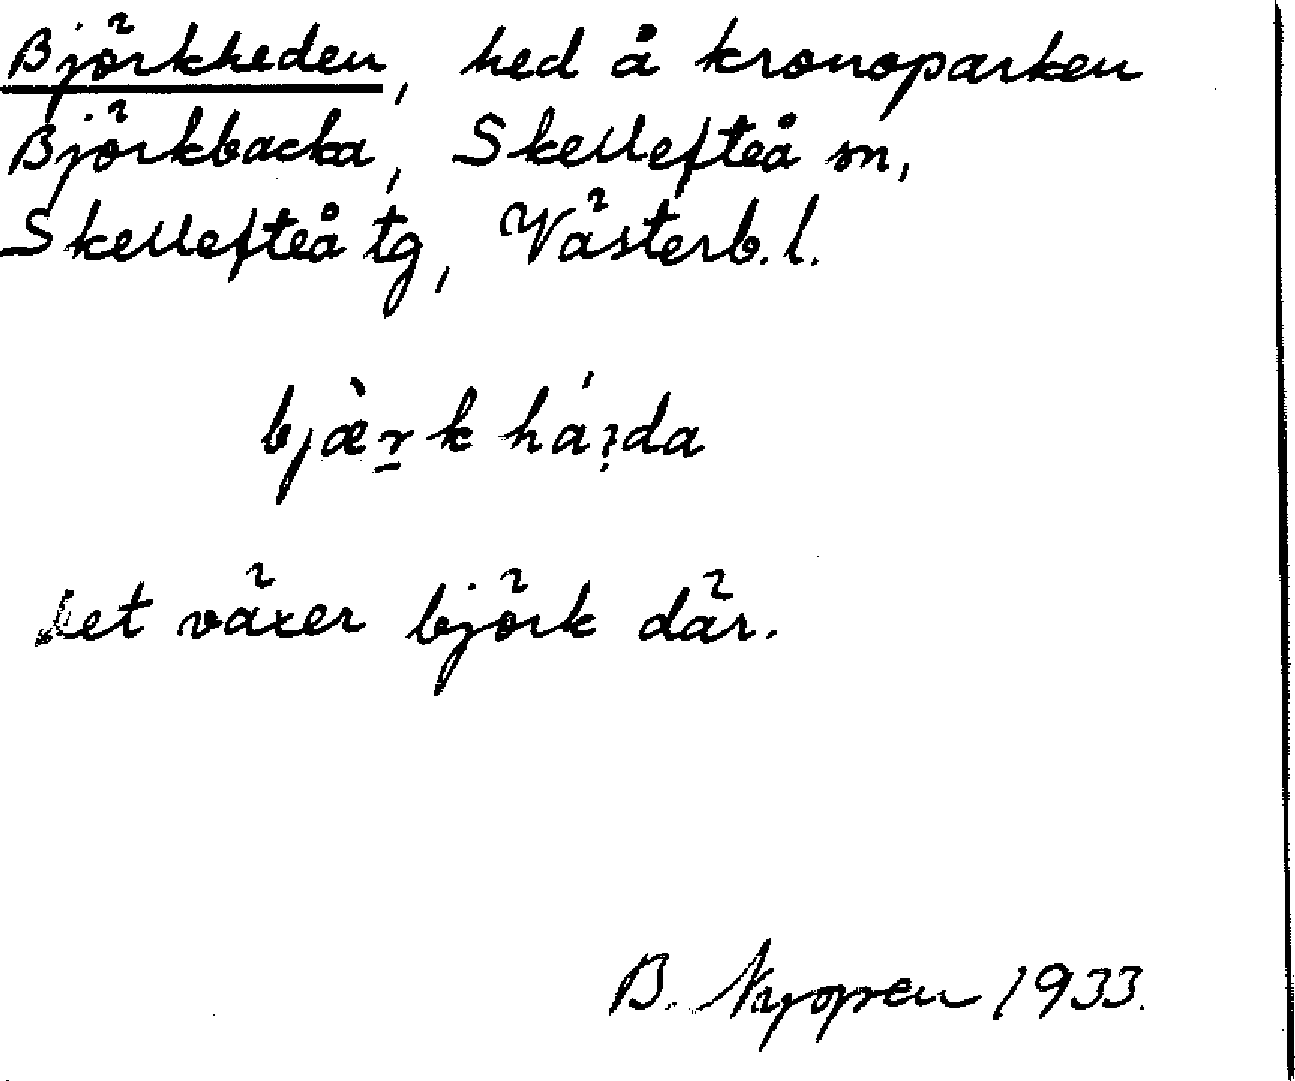 Björkheden, hed å kronoparken
Björkbacka, Skellefteå sn,
Skellefteå tg, Västerb. l.
bjæ̀r̠k há
Det växer björk där.
B. 1933.